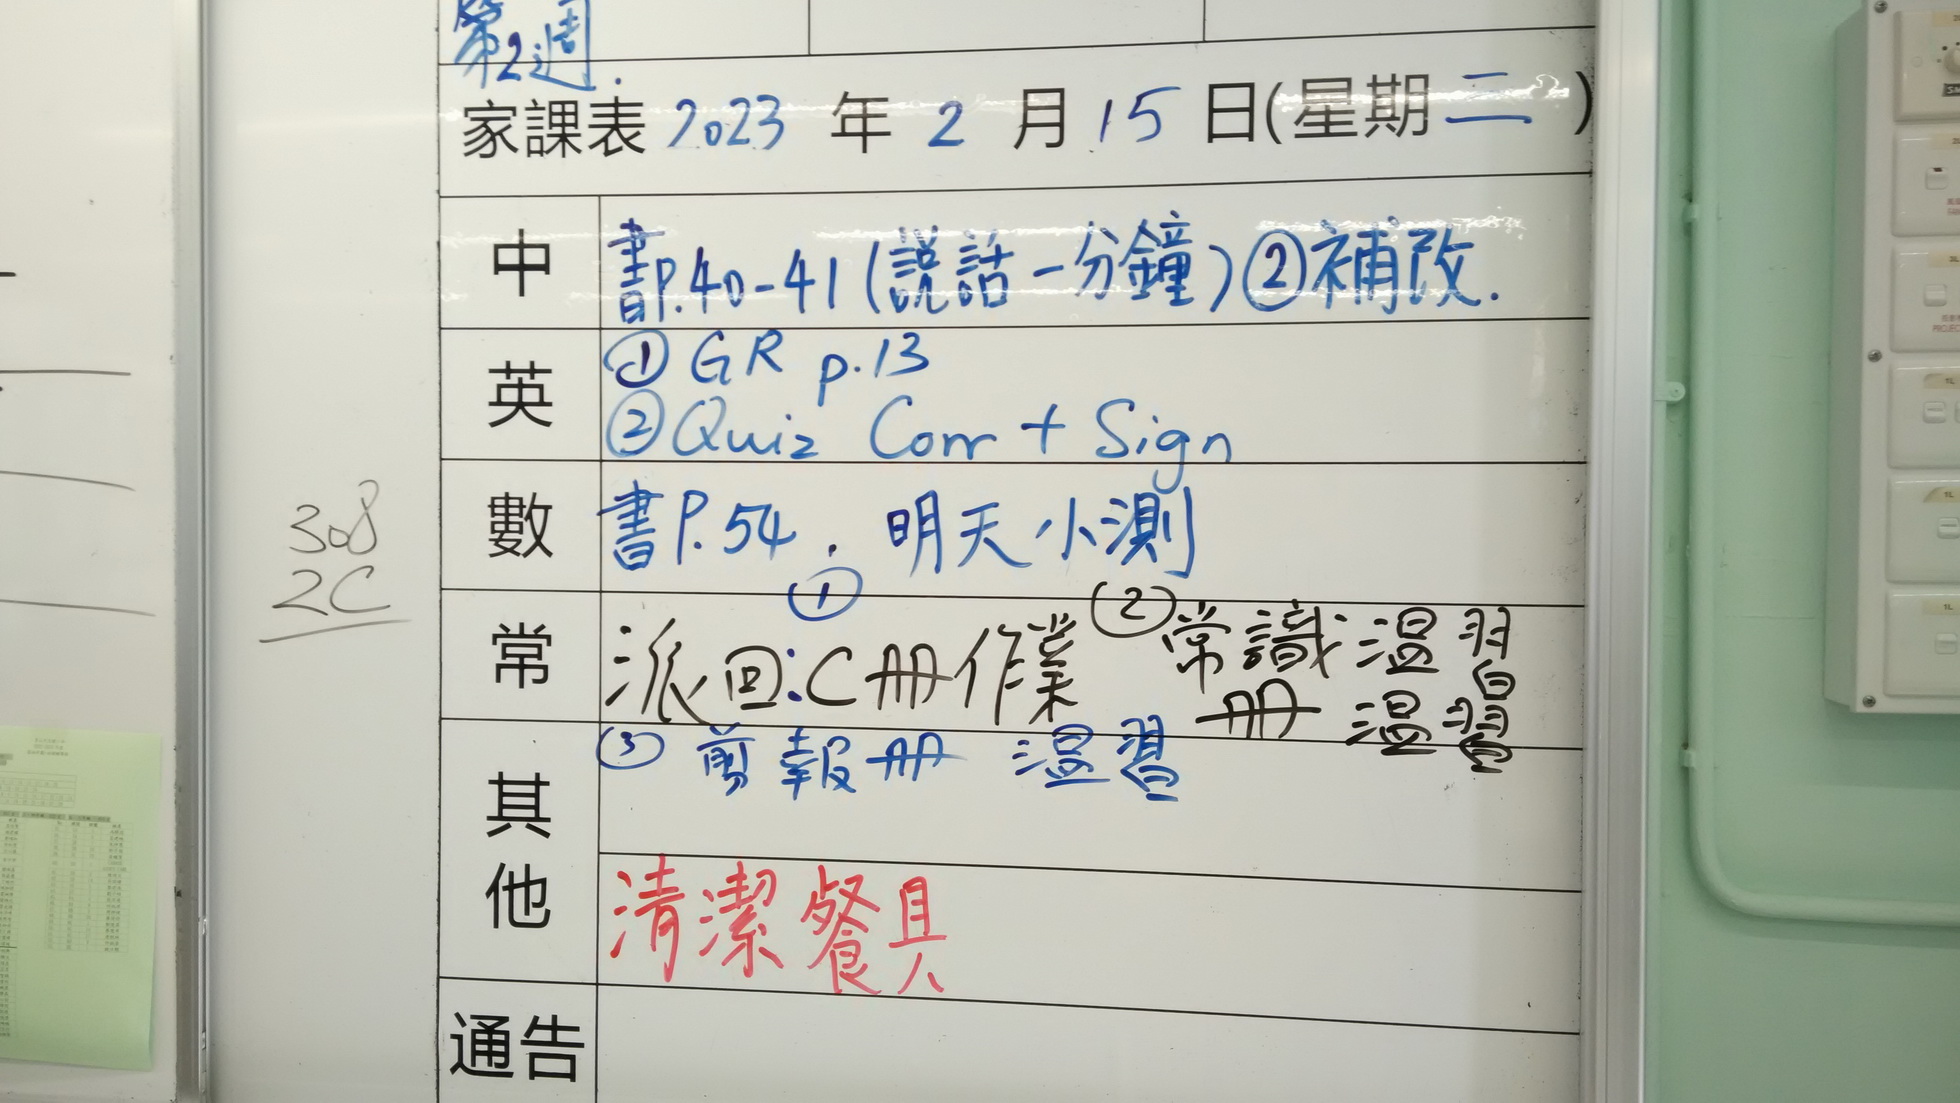 第2週.
家課表 2023 年 2 月 15 日(星期二)
中 書P.40-41(説話一分鐘)②補改.
英 ① GR p.13
② Quiz Corr + Sign
數 書P.54. 明天小測
常 ① 派回:C冊作業 ② 常識温習
冊 温習
③ 剪報冊 温習
其他
清潔餐具
通告
308
2C